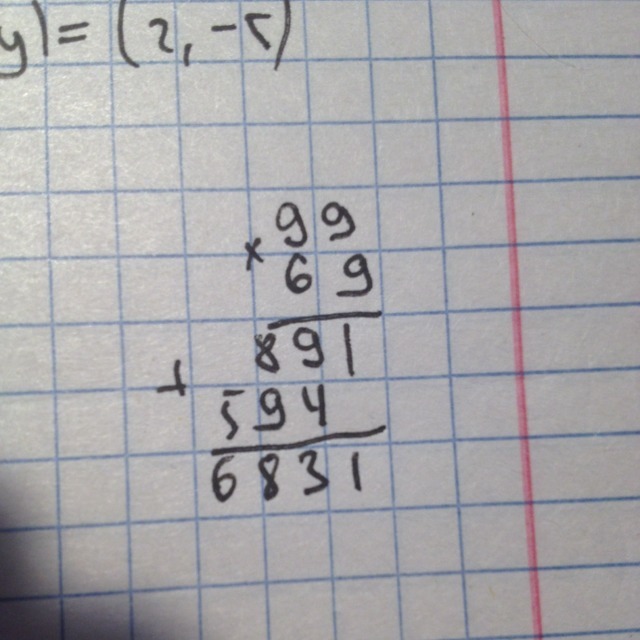 y) = (2, -5)
99
×
69
891
+
594
6831